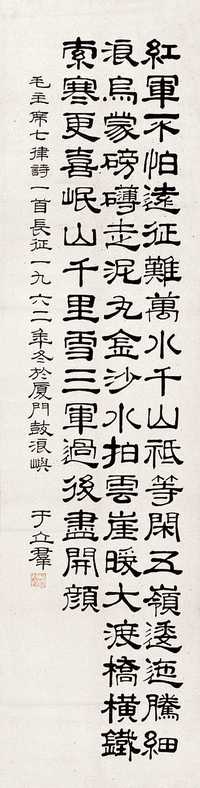 紅軍不怕遠征難萬水千山祗等閑五嶺逶迤騰細
浪烏蒙磅礴走泥丸金沙水拍雲崖暖大渡橋橫鐵
索寒更喜岷山千里雪三軍過後盡開顏
毛主席七律詩一首長征一九六二年冬於厦門鼓浪嶼 于立羣